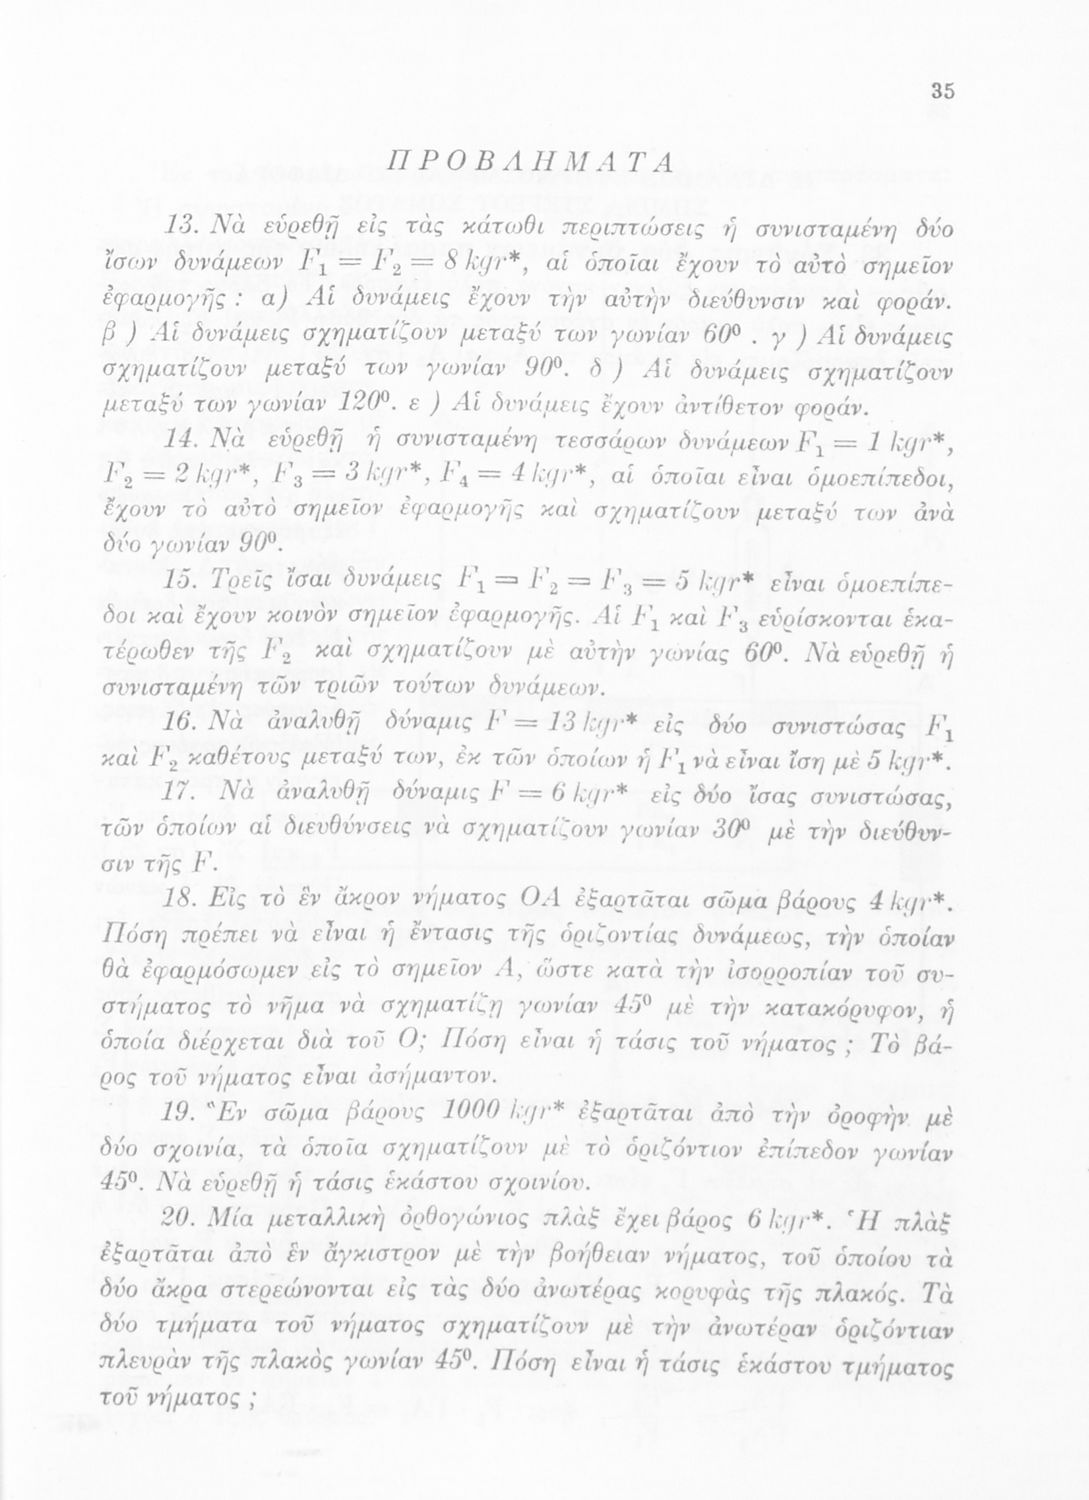 35
ΠΡΟΒΛΗΜΑΤΑ
13. Νὰ εὑρεθῇ εἰς τὰς κάτωθι περιπτώσεις ἡ συνισταμένη δύο
ἴσων δυνάμεων F₁ = F₂ = 8 kgr*, αἱ ὁποῖαι ἔχουν τὸ αὐτὸ σημεῖον
ἐφαρμογῆς : α) Αἱ δυνάμεις ἔχουν τὴν αὐτὴν διεύθυνσιν καὶ φοράν.
β ) Αἱ δυνάμεις σχηματίζουν μεταξύ των γωνίαν 60⁰ . γ ) Αἱ δυνάμεις
σχηματίζουν μεταξύ των γωνίαν 90⁰. δ ) Αἱ δυνάμεις σχηματίζουν
μεταξύ των γωνίαν 120⁰. ε ) Αἱ δυνάμεις ἔχουν ἀντίθετον φοράν.
14. Νὰ εὑρεθῇ ἡ συνισταμένη τεσσάρων δυνάμεων F₁ = 1 kgr*,
F₂ = 2 kgr*, F₃ = 3 kgr*, F₄ = 4 kgr*, αἱ ὁποῖαι εἶναι ὁμοεπίπεδοι,
ἔχουν τὸ αὐτὸ σημεῖον ἐφαρμογῆς καὶ σχηματίζουν μεταξύ των ἀνὰ
δύο γωνίαν 90⁰.
15. Τρεῖς ἴσαι δυνάμεις F₁ = F₂ = F₃ = 5 kgr* εἶναι ὁμοεπίπε-
δοι καὶ ἔχουν κοινὸν σημεῖον ἐφαρμογῆς. Αἱ F₁ καὶ F₃ εὑρίσκονται ἑκα-
τέρωθεν τῆς F₂ καὶ σχηματίζουν μὲ αὐτὴν γωνίας 60⁰. Νὰ εὑρεθῇ ἡ
συνισταμένη τῶν τριῶν τούτων δυνάμεων.
16. Νὰ ἀναλυθῇ δύναμις F = 13 kgr* εἰς δύο συνιστώσας F₁
καὶ F₂ καθέτους μεταξύ των, ἐκ τῶν ὁποίων ἡ F₁ νὰ εἶναι ἴση μὲ 5 kgr*.
17. Νὰ ἀναλυθῇ δύναμις F = 6 kgr* εἰς δύο ἴσας συνιστώσας,
τῶν ὁποίων αἱ διευθύνσεις νὰ σχηματίζουν γωνίαν 30⁰ μὲ τὴν διεύθυν-
σιν τῆς F.
18. Εἰς τὸ ἓν ἄκρον νήματος ΟΑ ἐξαρτᾶται σῶμα βάρους 4 kgr*.
Πόση πρέπει νὰ εἶναι ἡ ἔντασις τῆς ὁριζοντίας δυνάμεως, τὴν ὁποίαν
θὰ ἐφαρμόσωμεν εἰς τὸ σημεῖον Α, ὥστε κατὰ τὴν ἰσορροπίαν τοῦ συ-
στήματος τὸ νῆμα νὰ σχηματίζῃ γωνίαν 45⁰ μὲ τὴν κατακόρυφον, ἡ
ὁποία διέρχεται διὰ τοῦ Ο; Πόση εἶναι ἡ τάσις τοῦ νήματος ; Τὸ βά-
ρος τοῦ νήματος εἶναι ἀσήμαντον.
19. Ἓν σῶμα βάρους 1000 kgr* ἐξαρτᾶται ἀπὸ τὴν ὀροφὴν μὲ
δύο σχοινία, τὰ ὁποῖα σχηματίζουν μὲ τὸ ὁριζόντιον ἐπίπεδον γωνίαν
45⁰. Νὰ εὑρεθῇ ἡ τάσις ἑκάστου σχοινίου.
20. Μία μεταλλικὴ ὀρθογώνιος πλὰξ ἔχει βάρος 6 kgr*. Ἡ πλὰξ
ἐξαρτᾶται ἀπὸ ἓν ἄγκιστρον μὲ τὴν βοήθειαν νήματος, τοῦ ὁποίου τὰ
δύο ἄκρα στερεώνονται εἰς τὰς δύο ἀνωτέρας κορυφὰς τῆς πλακός. Τὰ
δύο τμήματα τοῦ νήματος σχηματίζουν μὲ τὴν ἀνωτέραν ὁριζόντιαν
πλευρὰν τῆς πλακὸς γωνίαν 45⁰. Πόση εἶναι ἡ τάσις ἑκάστου τμήματος
τοῦ νήματος ;